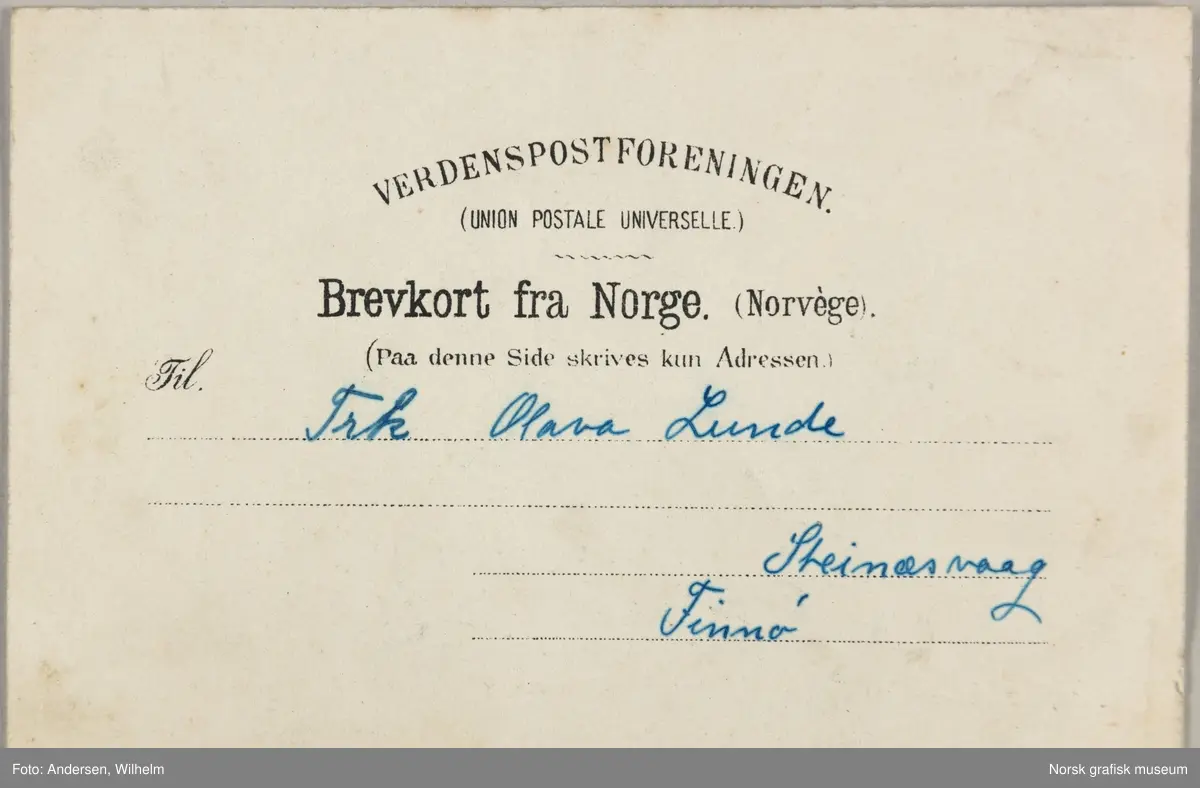 VERDENSPOSTFORENINGEN.
(UNION POSTALE UNIVERSELLE.)
Brevkort fra Norge. (Norvège).
(Paa denne Side skrives kun Adressen.)
Til.
Frk Olava Lunde
Steinæsvaag
Finnø
Foto: Andersen, Wilhelm
Norsk grafisk museum